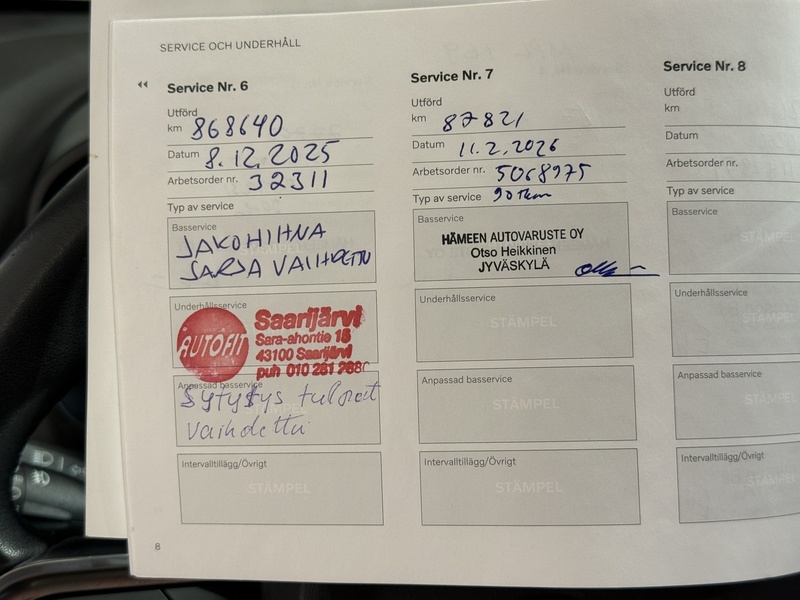 SERVICE OCH UNDERHÅLL
Service Nr. 6
Utförd
km 868640
Datum 8.12.2025
Arbetsorder nr. 32311
Typ av service
Basservice
JAKOHIHNA
SARJA VAIHDETTU
Underhållsservice
AUTOFIT
Saarijärvi
Sara-ahontie 15
43100 Saarijärvi
puh 010 281
Anpassad basservice
Sytytys tulpat
vaihdettu
Intervalltillägg/Övrigt
STÄMPEL
8
Service Nr. 7
Utförd
km 87821
Datum 11.2.2026
Arbetsorder nr. 5068975
Typ av service 90 Tkm
Basservice
HÄMEEN AUTOVARUSTE OY
Otso Heikkinen
JYVÄSKYLÄ
Underhållsservice
STÄMPEL
Anpassad basservice
STÄMPEL
Intervalltillägg/Övrigt
STÄMPEL
Service Nr. 8
Utförd
km
Datum
Arbetsorder nr.
Typ av service
Basservice
STÄMPEL
Underhållsservice
STÄMPEL
Anpassad basservice
STÄMPEL
Intervalltillägg/Övrigt
STÄMPEL